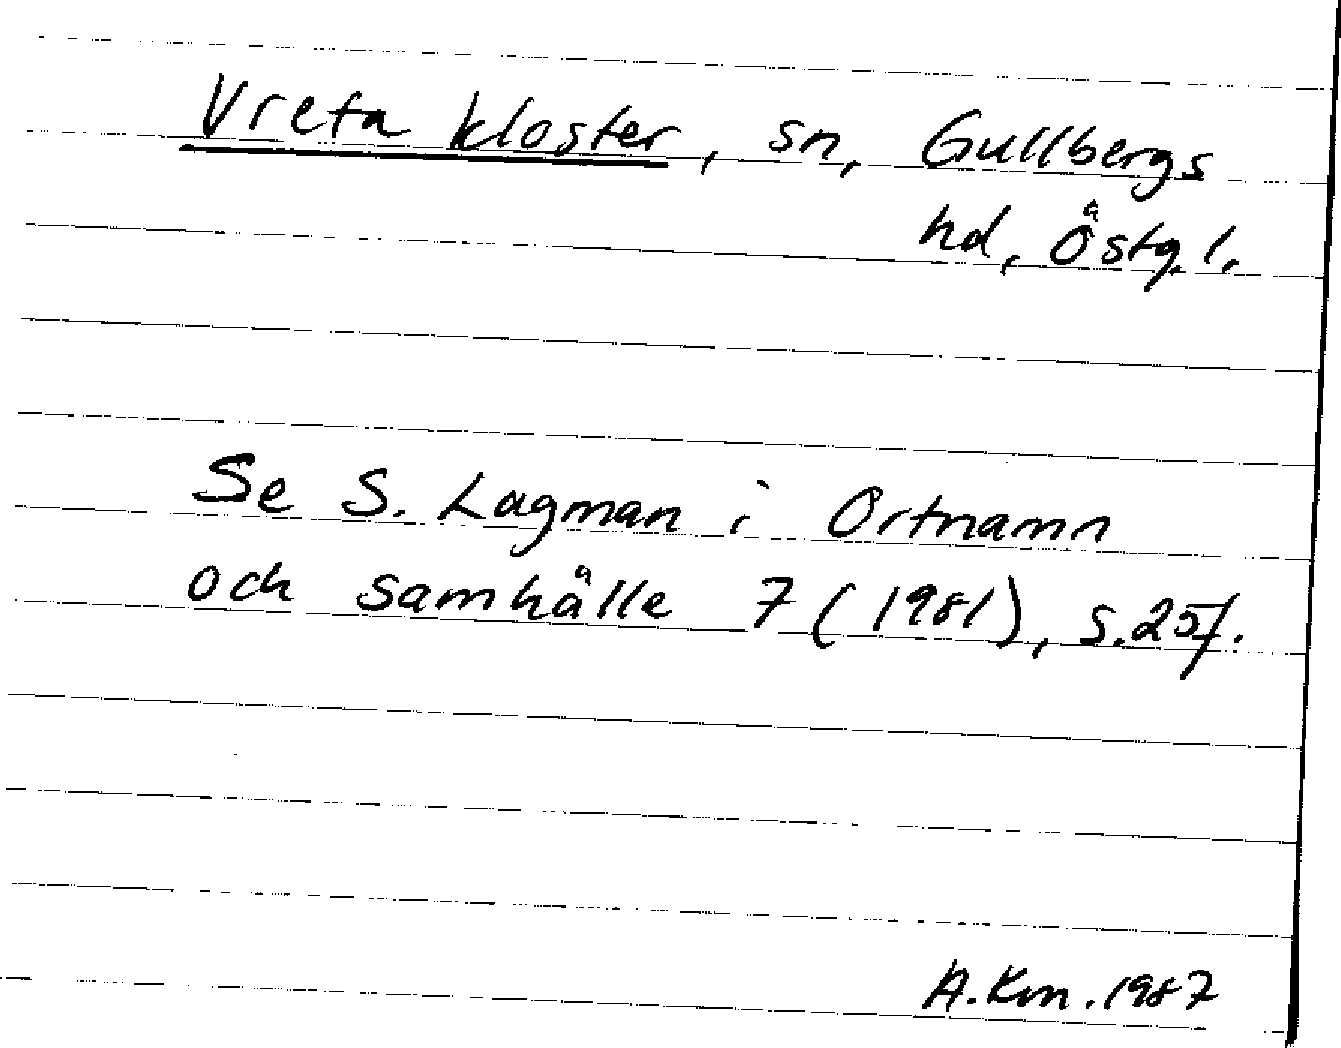 Vreta kloster, sn, Gullbergs
hd, Östg. l.
Se S. Lagman i Ortnamn
och samhälle 7 (1981), s. 25f.
A.Km. 1987